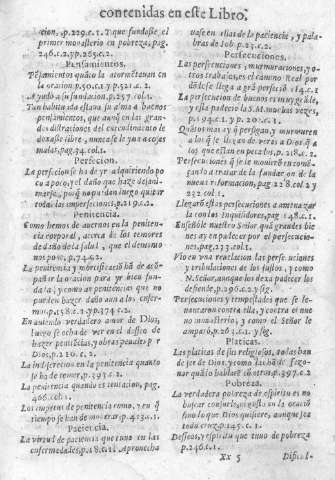 contenidas en este Libro.
cion, p.229.c.1. Y que fundasse el
primer monasterio en pobreza, pag.
246.c.2. y p.265.c.2.
Pensamientos.
Pensamientos quãto la atormetauan en
la oracion, p.50.c.1. y p.521.c.2.
Ayudò a su fundacion, p.257.col.1.
Tan habituada estaua su alma a buenos
pensamientos, que aunq̃ en las gran-
des distraciones del entendimiento le
dexasse libre, nunca se le yua a cosas
malas, pag.34.col.1.
Perfecion.
La perfecion se ha de yr adquiriendo po
co a poco, y el daño que haze dexan-
para todas las imperfeciones, p.219.c.2.
Penitencia.
Como hemos de auernos en la peniten-
cia corporal, acerca de los temores
de daño de la salud, que el demonio
nos pone, p.74.c.2.
La penitencia y mortificacio hã de aco-
pañar la oracion para yr bien fun-
dada, y como ay penitencias que no
pueden hazer daño aun a los enfer-
mos, p.158.c.2. y 374.c.2.
En auiendo verdadero amor de Dios,
luego se echa de ver en el desseo de
hazer penitẽcias, y obras penales por
Dios, p.120.c.2.
La indiscrecion en la penitencia quanto
se ha de temer, p.393.c.2.
La penitencia quando es tentacion, pag.
466.col.1.
Los impetus de penitencia como, y en q̃
tiempo se han de moderar, p.423.c.1.
Paciencia.
La virtud de paciencia que tuuo en las
enfermedades, p.18.c.1. Aprouecha
uase en ellas de la paciencia, y pala-
bras de Iob. p.25.c.2.
Persecuciones.
Las persecuciones, murmuraciones, y o-
tros trabajos, es el camino Real por
dõde se llega a grã perfeciõ, 184.c.1
La persecucion de buenos es muy grãde,
y esta padecio la S.M. muchas vezes,
p.194.c.1. y p.201.c.1.
Quãtos mas ay q̃ persigan, y murmuren
a los q̃ se llegan de veras a Dios, q̃ a
los que estan en pecados, p.218.c.2.
Persecucion q̃ se le mouiero en comẽ-
çando a tratar de la fundacion de la
nueua reformacion, pag.228.col.2 y
232.col.1.
Llegarõ estas persecuciones a amenazar
la con los inquisidores, pag 248.c.1.
Enseñole nuestro Señor quã grandes bie-
nes ay en padecer por el persecucio-
nes, pag.273.col.1.
Vio en vna reuelacion las persecuciones
y tribulaciones de los justos, y como
N. Señor, aunque los dexa padecer los
defiende, p.296.c.2. y sig.
Persecuciones y tempestades que se le-
uantaron contra ella, y contra el nue
uo monasterio, y como el Señor le
amparò, p.263.c.1. y sig.
Platicas.
Las platicas de sus religiosas, todas han
de ser de Dios, y como les hã de sazo-
nar quãdo hablan cõ otros, p.397.c.2
Pobreza.
La verdadera pobreza de espiritu es no
buscar consuelo, ni gusto en la oraciõ
sino lo que Dios quisiere, aunque sea
todo cruz, p.145.c.1.
Desseos, y espiritu que tuuo de pobreza
p.246.c.1.
Xx 5 Disol-